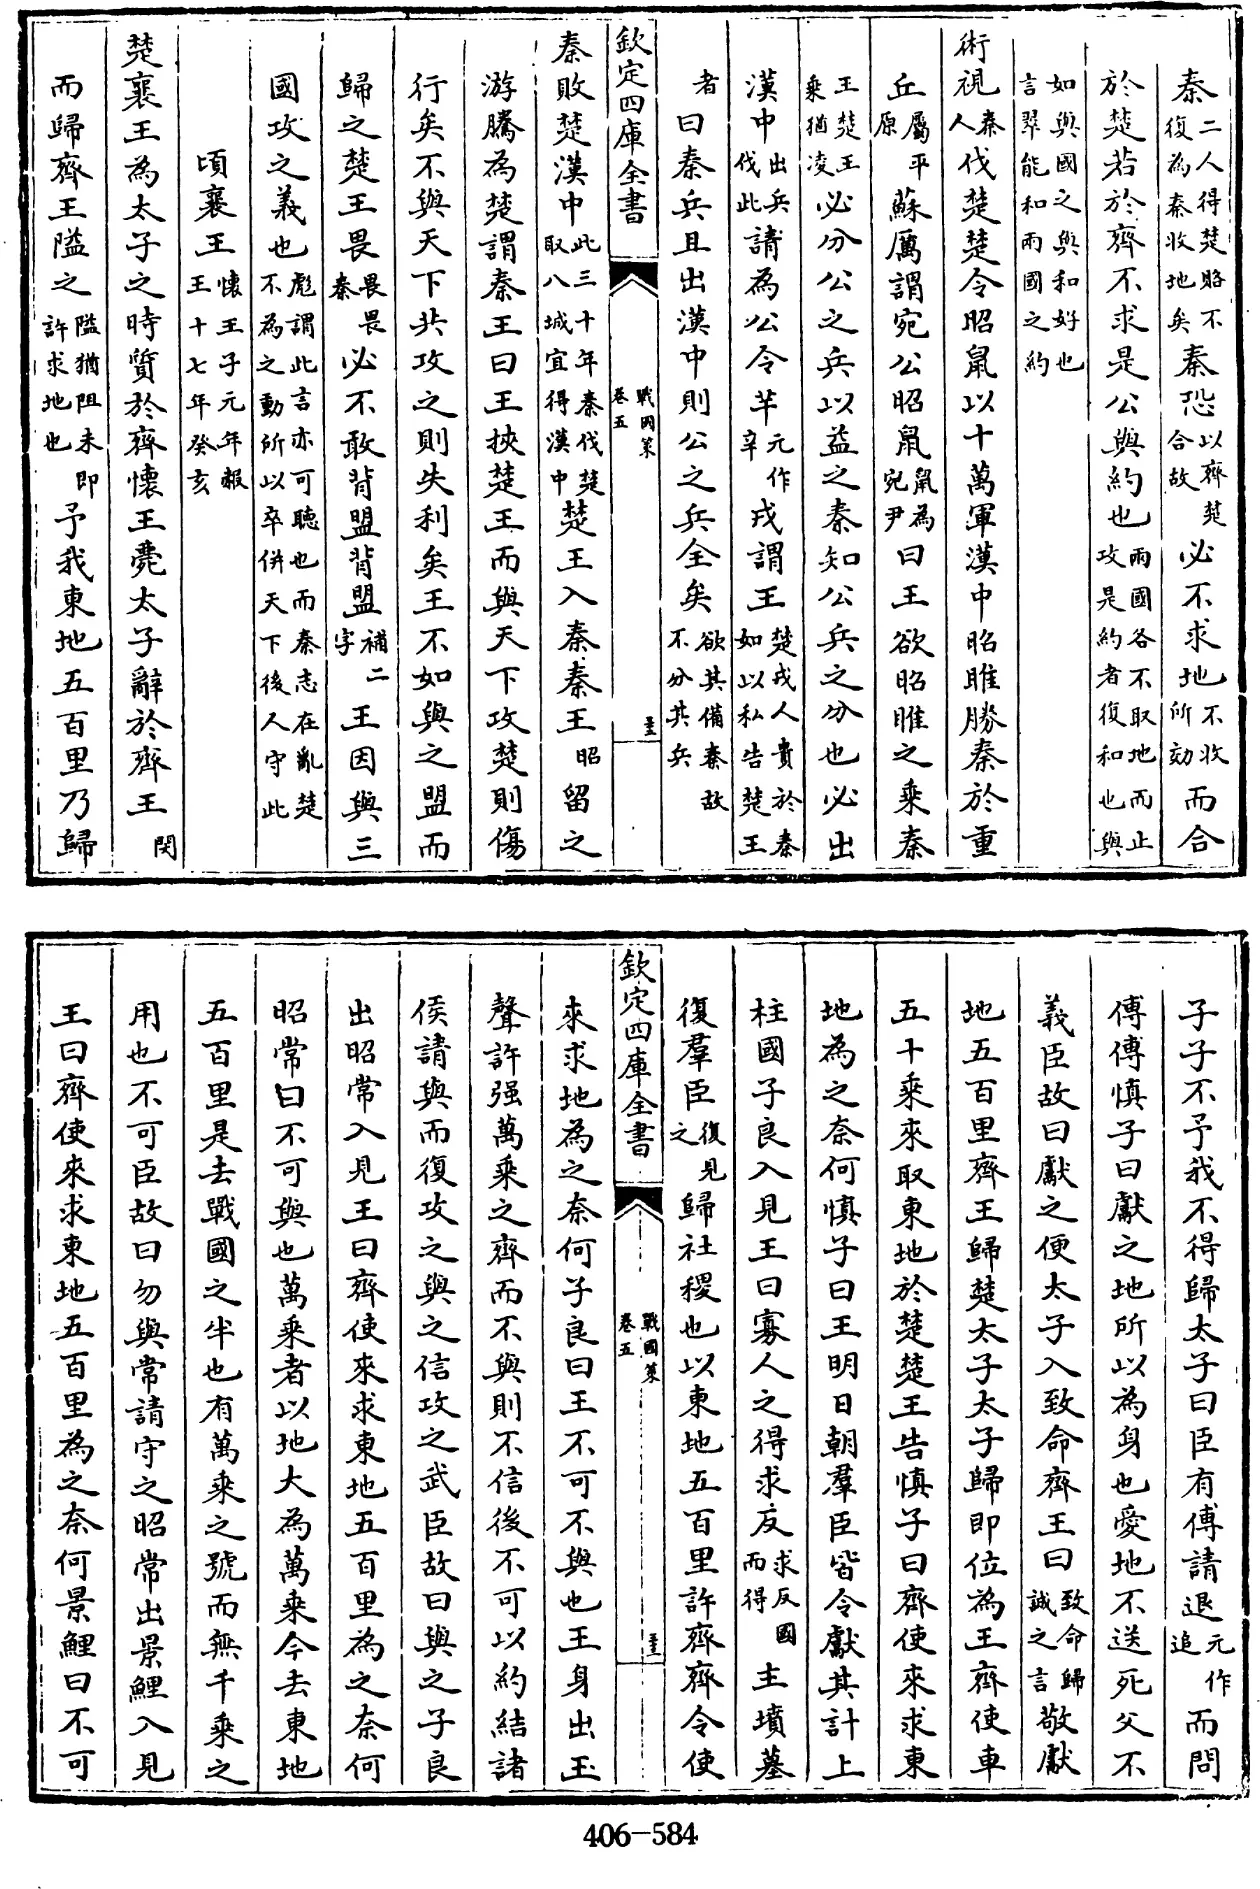 秦二人得楚賂不復為秦收地矣秦恐以齊楚合故必不求地不收所効而合
於楚若於齊不求是公與約也兩國各不取地而止攻是約者復和也與
如與國之與和好也言翠能和兩國之約
術視秦人伐楚楚令昭鼠以十萬軍漢中昭睢勝秦於重
丘屬平原蘇厲謂宛公昭鼠鼠為宛尹曰王欲昭睢之乘秦
王楚王乘猶凌必分公之兵以益之秦知公兵之分也必出
漢中出兵伐此請為公令芈元作辛戎謂王楚戎人貴於秦如以私告楚王
者曰秦兵且出漢中則公之兵全矣欲其備秦故不分其兵
欽定四庫全書
戰國策
卷五
秦敗楚漢中此三十年秦伐楚取八城宜得漢中楚王入秦秦王昭留之
游騰為楚謂秦王曰王挾楚王而與天下攻楚則傷
行矣不與天下共攻之則失利矣王不如與之盟而
歸之楚王畏畏畏秦必不敢背盟背盟補二字王因與三
國攻之義也彪謂此言亦可聽也而秦志在亂楚不為之動所以卒併天下後人守此
頃襄王懷王子元年赧王十七年癸亥
楚襄王為太子之時質於齊懷王薨太子辭於齊王閔
而歸齊王隘之隘猶阻未即許求地也予我東地五百里乃歸
子子不予我不得歸太子曰臣有傅請退元作追而問
傅傅慎子曰獻之地所以為身也愛地不送死父不
義臣故曰獻之便太子入致命齊王曰致命歸誠之言敬獻
地五百里齊王歸楚太子太子歸即位為王齊使車
五十乘來取東地於楚楚王告慎子曰齊使來求東
地為之奈何慎子曰王明日朝羣臣皆令獻其計上
柱國子良入見王曰寡人之得求反求反國而得主墳墓
復羣臣復見之歸社稷也以東地五百里許齊齊令使
欽定四庫全書
戰國策
卷五
來求地為之奈何子良曰王不可不與也王身出玉
聲許强萬乘之齊而不與則不信後不可以約結諸
侯請與而復攻之與之信攻之武臣故曰與之子良
出昭常入見王曰齊使來求東地五百里為之奈何
昭常曰不可與也萬乘者以地大為萬乘今去東地
五百里是去戰國之半也有萬乘之號而無千乘之
用也不可臣故曰勿與常請守之昭常出景鯉入見
王曰齊使來求東地五百里為之奈何景鯉曰不可
406-584